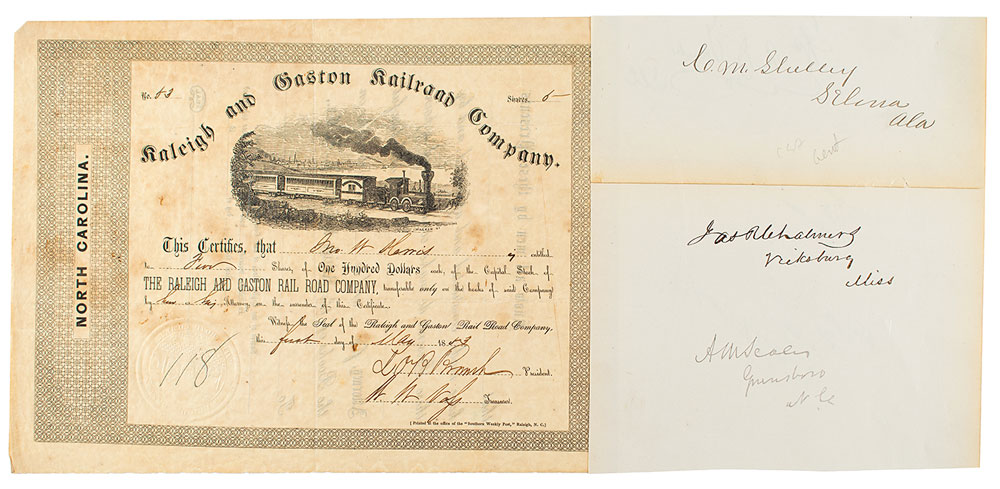 NORTH CAROLINA.
No. 83
Shares, 5
Raleigh and Gaston Railroad Company.
This Certifies, that Jno. W. Harris is entitled
to Five Shares, of One Hundred Dollars each, of the Capital Stock of
THE RALEIGH AND GASTON RAIL ROAD COMPANY, transferable only on the books of said Company
by him or his Attorney on the surrender of this Certificate.
Witness the Seal of the Raleigh and Gaston Rail Road Company.
this first day of May 1853
L O'B Branch President.
W. W. Vass Treasurer.
118
[Printed at the office of the "Southern Weekly Post," Raleigh, N. C.]
C. M. Shelley
Selma
Ala
Jas R Chalmers
Vicksburg
Miss
A M Scales
Greensboro
N. C.